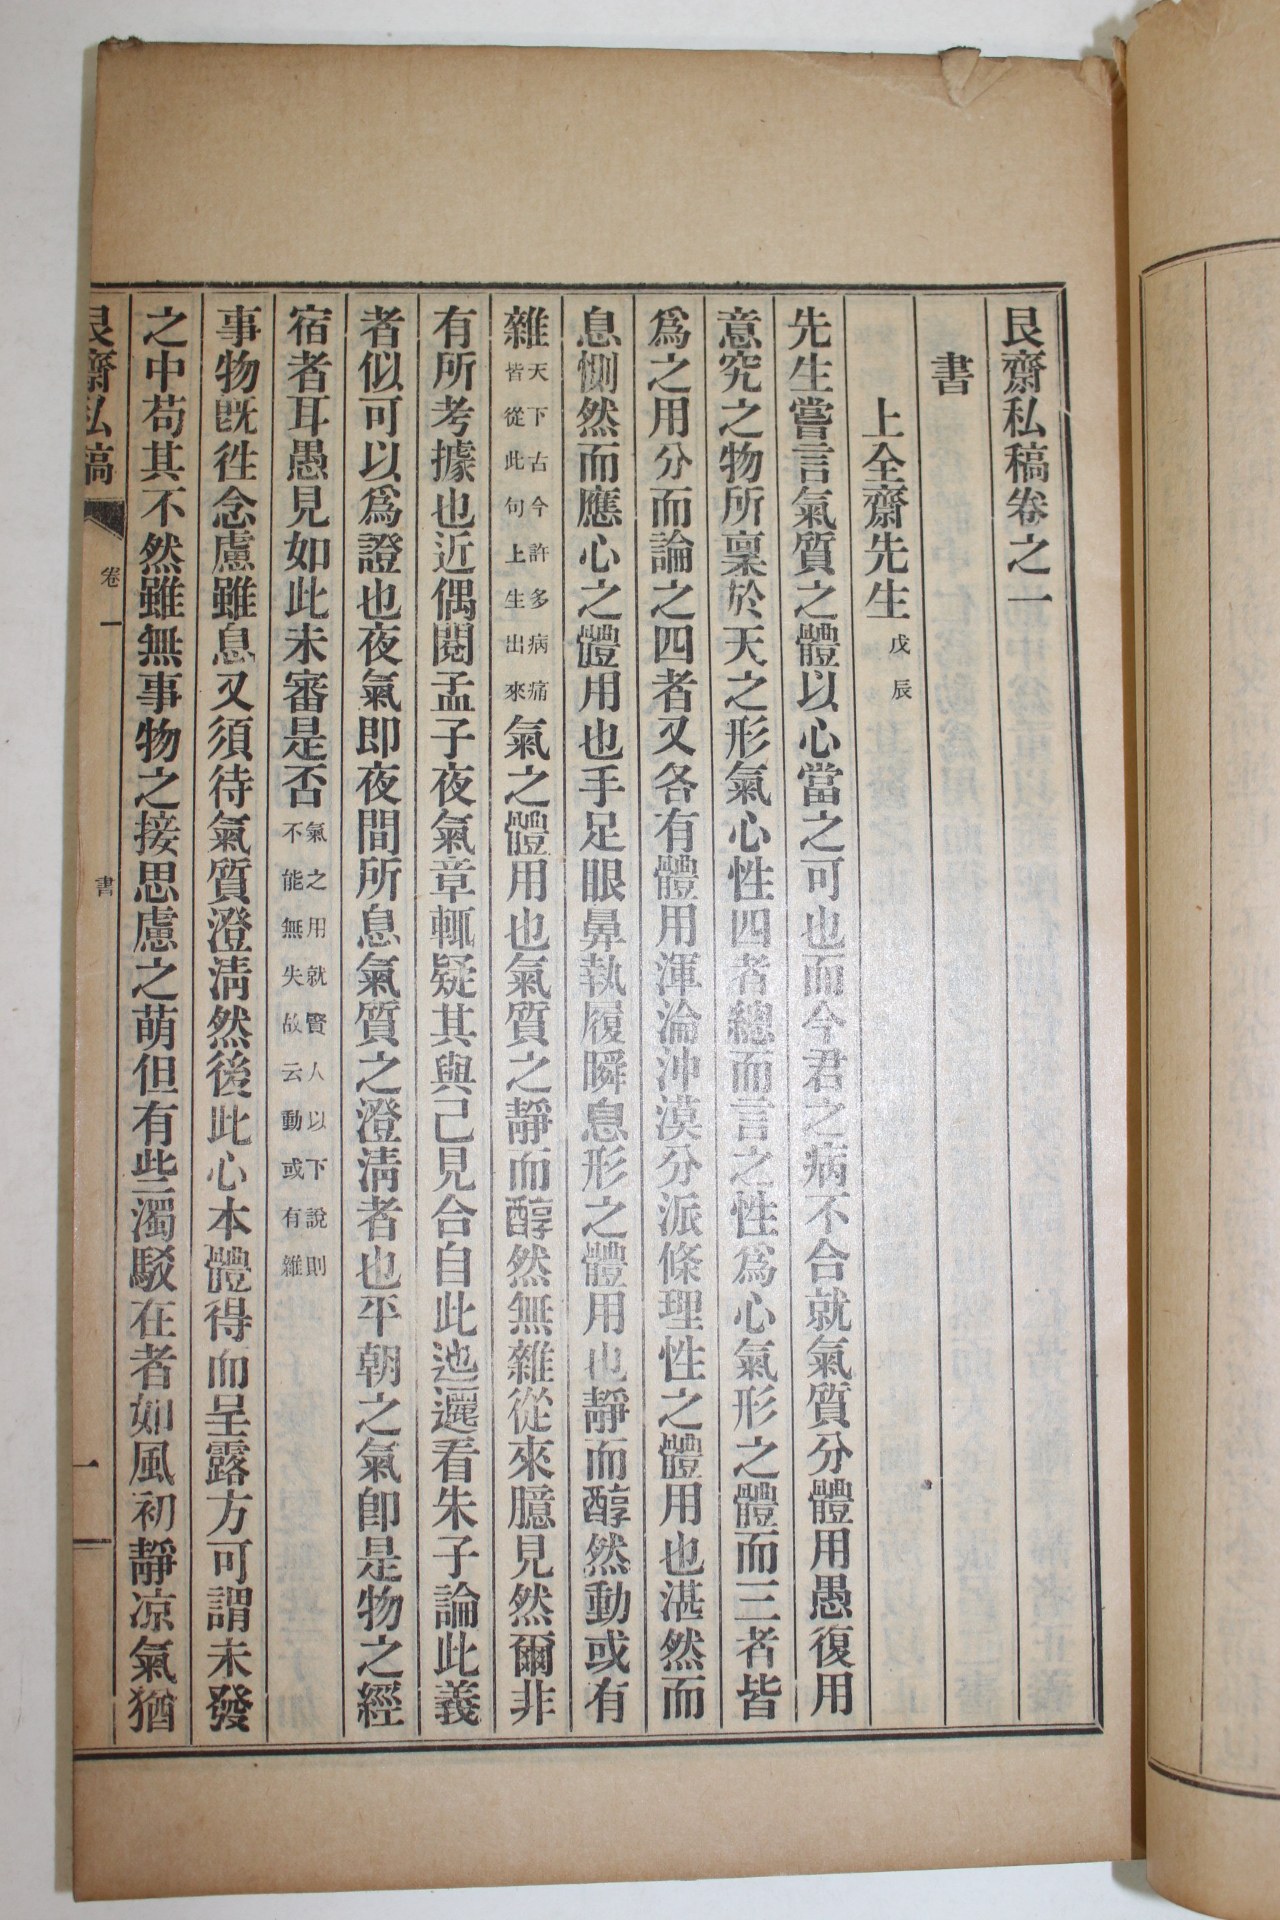 艮齋私稿卷之一
書
上全齋先生戊辰
先生嘗言氣質之體以心當之可也而今君之病不合就氣質分體用愚復用
意究之物所稟於天之形氣心性四者總而言之性爲心氣形之體而三者皆
爲之用分而論之四者又各有體用渾淪沖漠分派條理性之體用也湛然而
息惻然而應心之體用也手足眼鼻執履瞬息形之體用也靜而醇然動或有
雜天下古今許多病痛皆從此句上生出來氣之體用也氣質之靜而醇然無雜從來臆見然爾非
有所考據也近偶閱孟子夜氣章輒疑其與己見合自此迆邐看朱子論此義
者似可以爲證也夜氣即夜間所息氣質之澄淸者也平朝之氣卽是物之經
宿者耳愚見如此未審是否氣之用就賢人以下說則不能無失故云動或有雜
事物旣徃念慮雖息又須待氣質澄淸然後此心本體得而呈露方可謂未發
之中苟其不然雖無事物之接思慮之萌但有些濁駁在者如風初靜凉氣猶
艮齋私稿 卷一 書 一